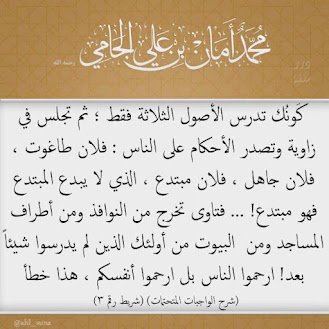 محمد أمان بن علي الجامي
رحمه الله
كونُك تدرس الأصول الثلاثة فقط ؛ ثم تجلس في
زاوية وتصدر الأحكام على الناس : فلان طاغوت ،
فلان جاهل ، فلان مبتدع ، الذي لا يبدع المبتدع
فهو مبتدع! ... فتاوى تخرج من النوافذ ومن أطراف
المساجد ومن البيوت من أولئك الذين لم يدرسوا شيئاً
بعد! ارحموا الناس بل ارحموا أنفسكم ، هذا خطأ
(شرح الواجبات المتحتمات) (شريط رقم ٣)